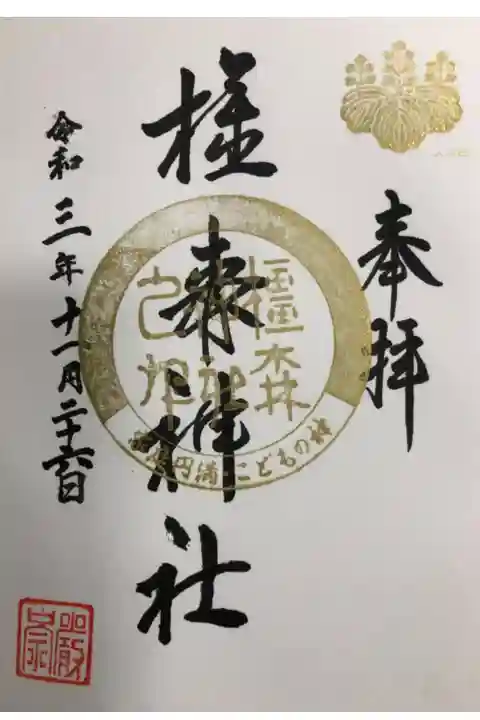 奉拝
橿森神社
橿森
家庭円満・こどもの神
令和三年十一月二十六日